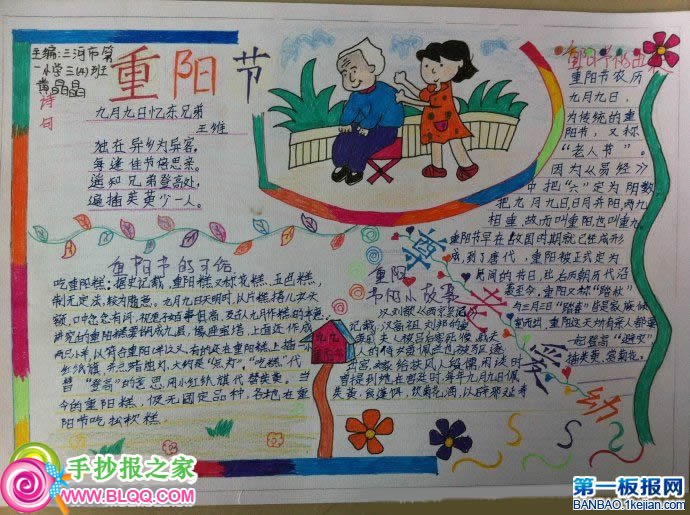 主编:三河市第
一小学三(4)班
黄晶晶
重阳节
诗词
九月九日忆东兄弟
王维
独在异乡为异客,
每逢佳节倍思亲。
遥知兄弟登高处,
遍插茱萸少一人。
重阳节的由来
重阳节农历
九月九日,
为传统的重
阳节,又称
“老人节”。
因为《易经》
中把“六”定为阴数
把九月九日日月并阳两九
相重,故而叫重阳也叫重九。
重阳节早在战国时期就已经成形
成,到了唐代,重阳被正式定为
民间的节日,此后历朝历代沿
袭至今,重阳又称“踏秋”
与三月三日“踏春”皆是家族倾
室而出,重阳这天所有亲人都要
一起登高“避灾”
插茱萸、赏菊花。
重阳节的习俗
吃重阳糕:据史记载,重阳糕又称花糕、五色糕,
制无定法,较为随意。九月九日天明时,以片糕搭儿女头
额,口中念念有词,祝愿子女百事俱高,乃古人九月作糕的本意。
讲究的重阳糕要做成九层,像座宝塔,上面还作成
两只小羊,以符合重阳(羊)之义。有的还在重阳糕上插一
红纸旗,并点蜡烛灯。大约是“点灯”、“吃糕”代
替“登高”的意思,用小红纸旗代替茱萸。当
今的重阳糕,仍无固定品种,各地在重
阳节吃松软糕
重阳
节的小故事
九九
重阳节
尊老爱幼
手抄报之家
WWW.BLQQ.COM
第一板报网
BANBAO.1kejian.COM